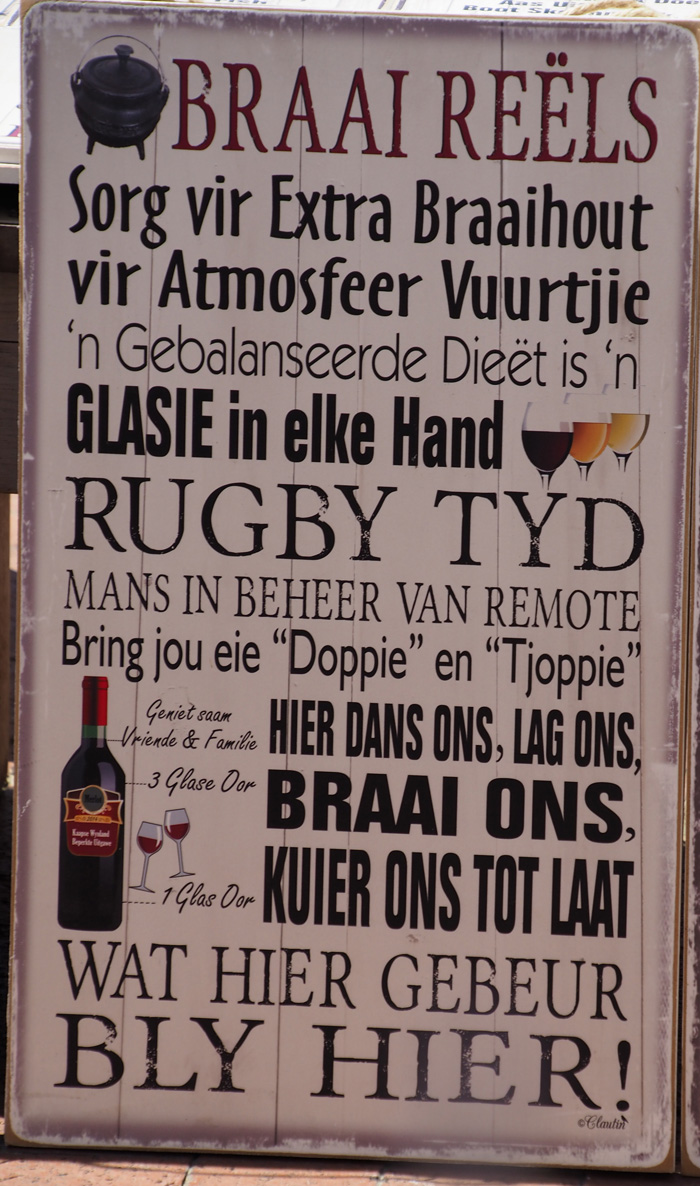 BRAAI REËLS
Sorg vir Extra Braaihout
vir Atmosfeer Vuurtjie
'n Gebalanseerde Dieët is 'n
GLASIE in elke Hand
RUGBY TYD
MANS IN BEHEER VAN REMOTE
Bring jou eie "Doppie" en "Tjoppie"
Geniet saam
Vriende & Familie
3 Glase Oor
1 Glas Oor
Kaapse Wynland
Beperkte Uitgawe
HIER DANS ONS, LAG ONS,
BRAAI ONS,
KUIER ONS TOT LAAT
WAT HIER GEBEUR
BLY HIER!
©Clautin